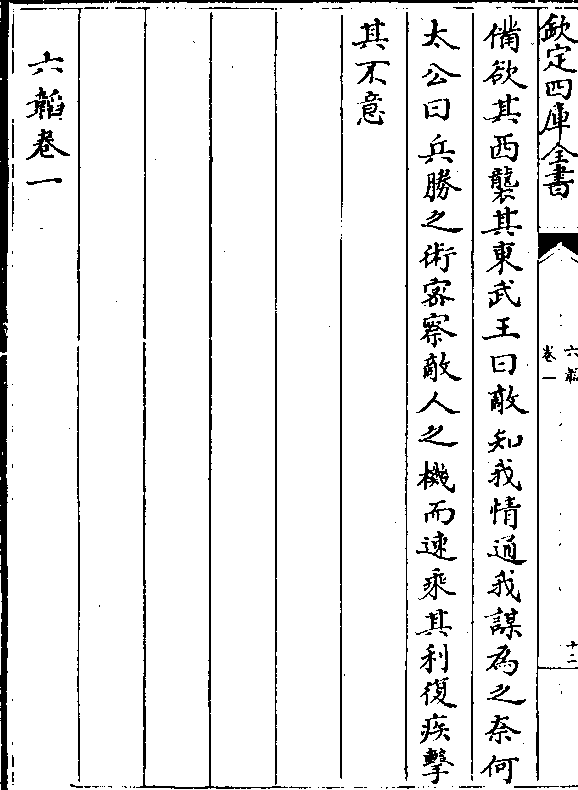 欽定四庫全書
六韜
卷一
十二
備欲其西襲其東武王曰敵知我情通我謀為之奈何
太公曰兵勝之術宻察敵人之機而速乘其利復疾擊
其不意
六韜卷一